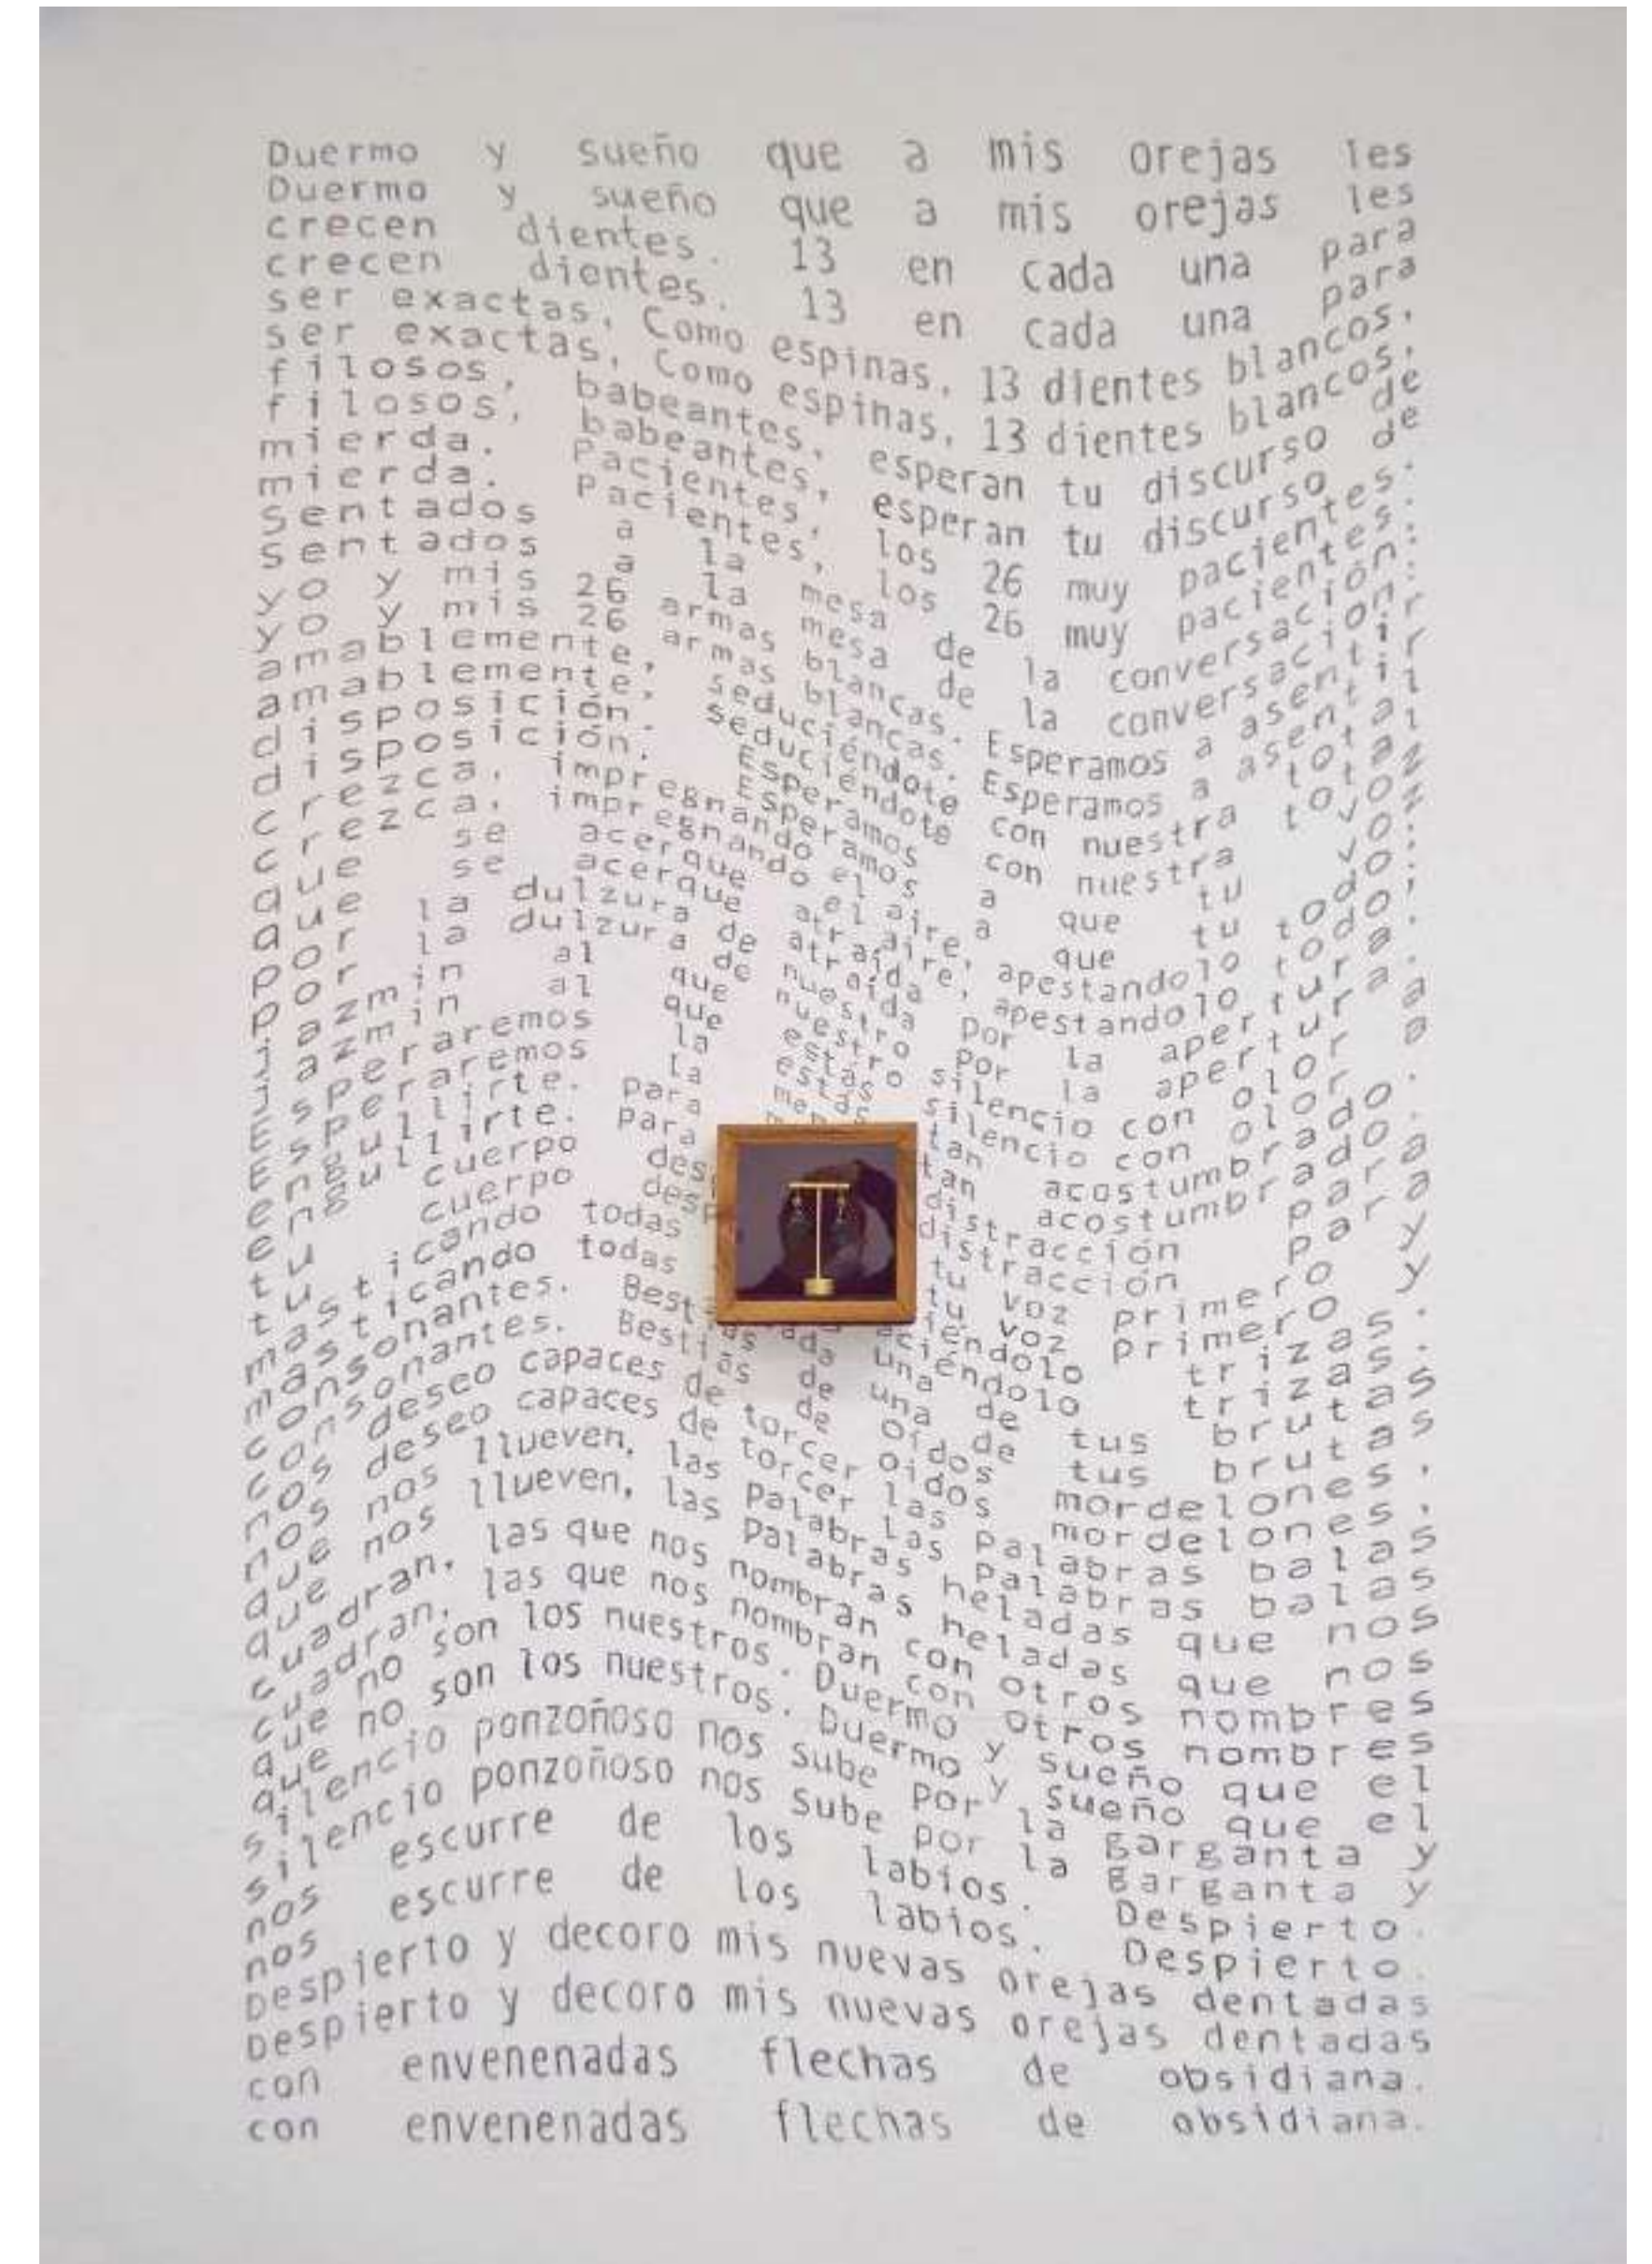 Duermo y sueño que a mis orejas les
Duermo y sueño que a mis orejas les
crecen dientes. 13 en cada una para
crecen dientes. 13 en cada una para
ser exactas. Como espinas, 13 dientes blancos,
ser exactas. Como espinas, 13 dientes blancos,
filosos, babeantes, esperan tu discurso de
filosos, babeantes, esperan tu discurso de
mierda. Pacientes, los 26 muy pacientes.
mierda. Pacientes, los 26 muy pacientes.
Sentados a la mesa de la conversación:
Sentados a la mesa de la conversación:
yo y mis 26 armas blancas. Esperamos a asentir
yo y mis 26 armas blancas. Esperamos a asentir
amablemente, seduciéndote con nuestra total
amablemente, seduciéndote con nuestra total
disposición. Esperamos a que tu voz
disposición. Esperamos a que tu voz
crezca, impregnando el aire, apestandolo todo;
crezca, impregnando el aire, apestandolo todo;
que se acerque atraída por la apertura.
que se acerque atraída por la apertura.
por la dulzura de nuestro silencio con olor a
por la dulzura de nuestro silencio con olor a
jazmin al que estás tan acostumbrado.
jazmin al que estás tan acostumbrado.
Esperaremos la distracción para
Esperaremos la distracción para
engullirte. Para tu voz primero y
engullirte. Para tu voz primero y
tu cuerpo trizas.
tu cuerpo trizas.
masticando todas cada una de tus brutas
masticando todas cada una de tus brutas
consonantes. Bestias de oídos mordelones,
consonantes. Bestias de oídos mordelones,
nos deseo capaces de torcer las palabras balas
nos deseo capaces de torcer las palabras balas
que nos llueven, las palabras heladas que nos
que nos llueven, las palabras heladas que nos
cuadran, las que nos nombran con otros nombres
cuadran, las que nos nombran con otros nombres
que no son los nuestros. Duermo y sueño que el
que no son los nuestros. Duermo y sueño que el
silencio ponzoñoso nos sube por la garganta y
silencio ponzoñoso nos sube por la garganta y
nos escurre de los labios. Despierto.
nos escurre de los labios. Despierto.
Despierto y decoro mis nuevas orejas dentadas
Despierto y decoro mis nuevas orejas dentadas
con envenenadas flechas de obsidiana.
con envenenadas flechas de obsidiana.